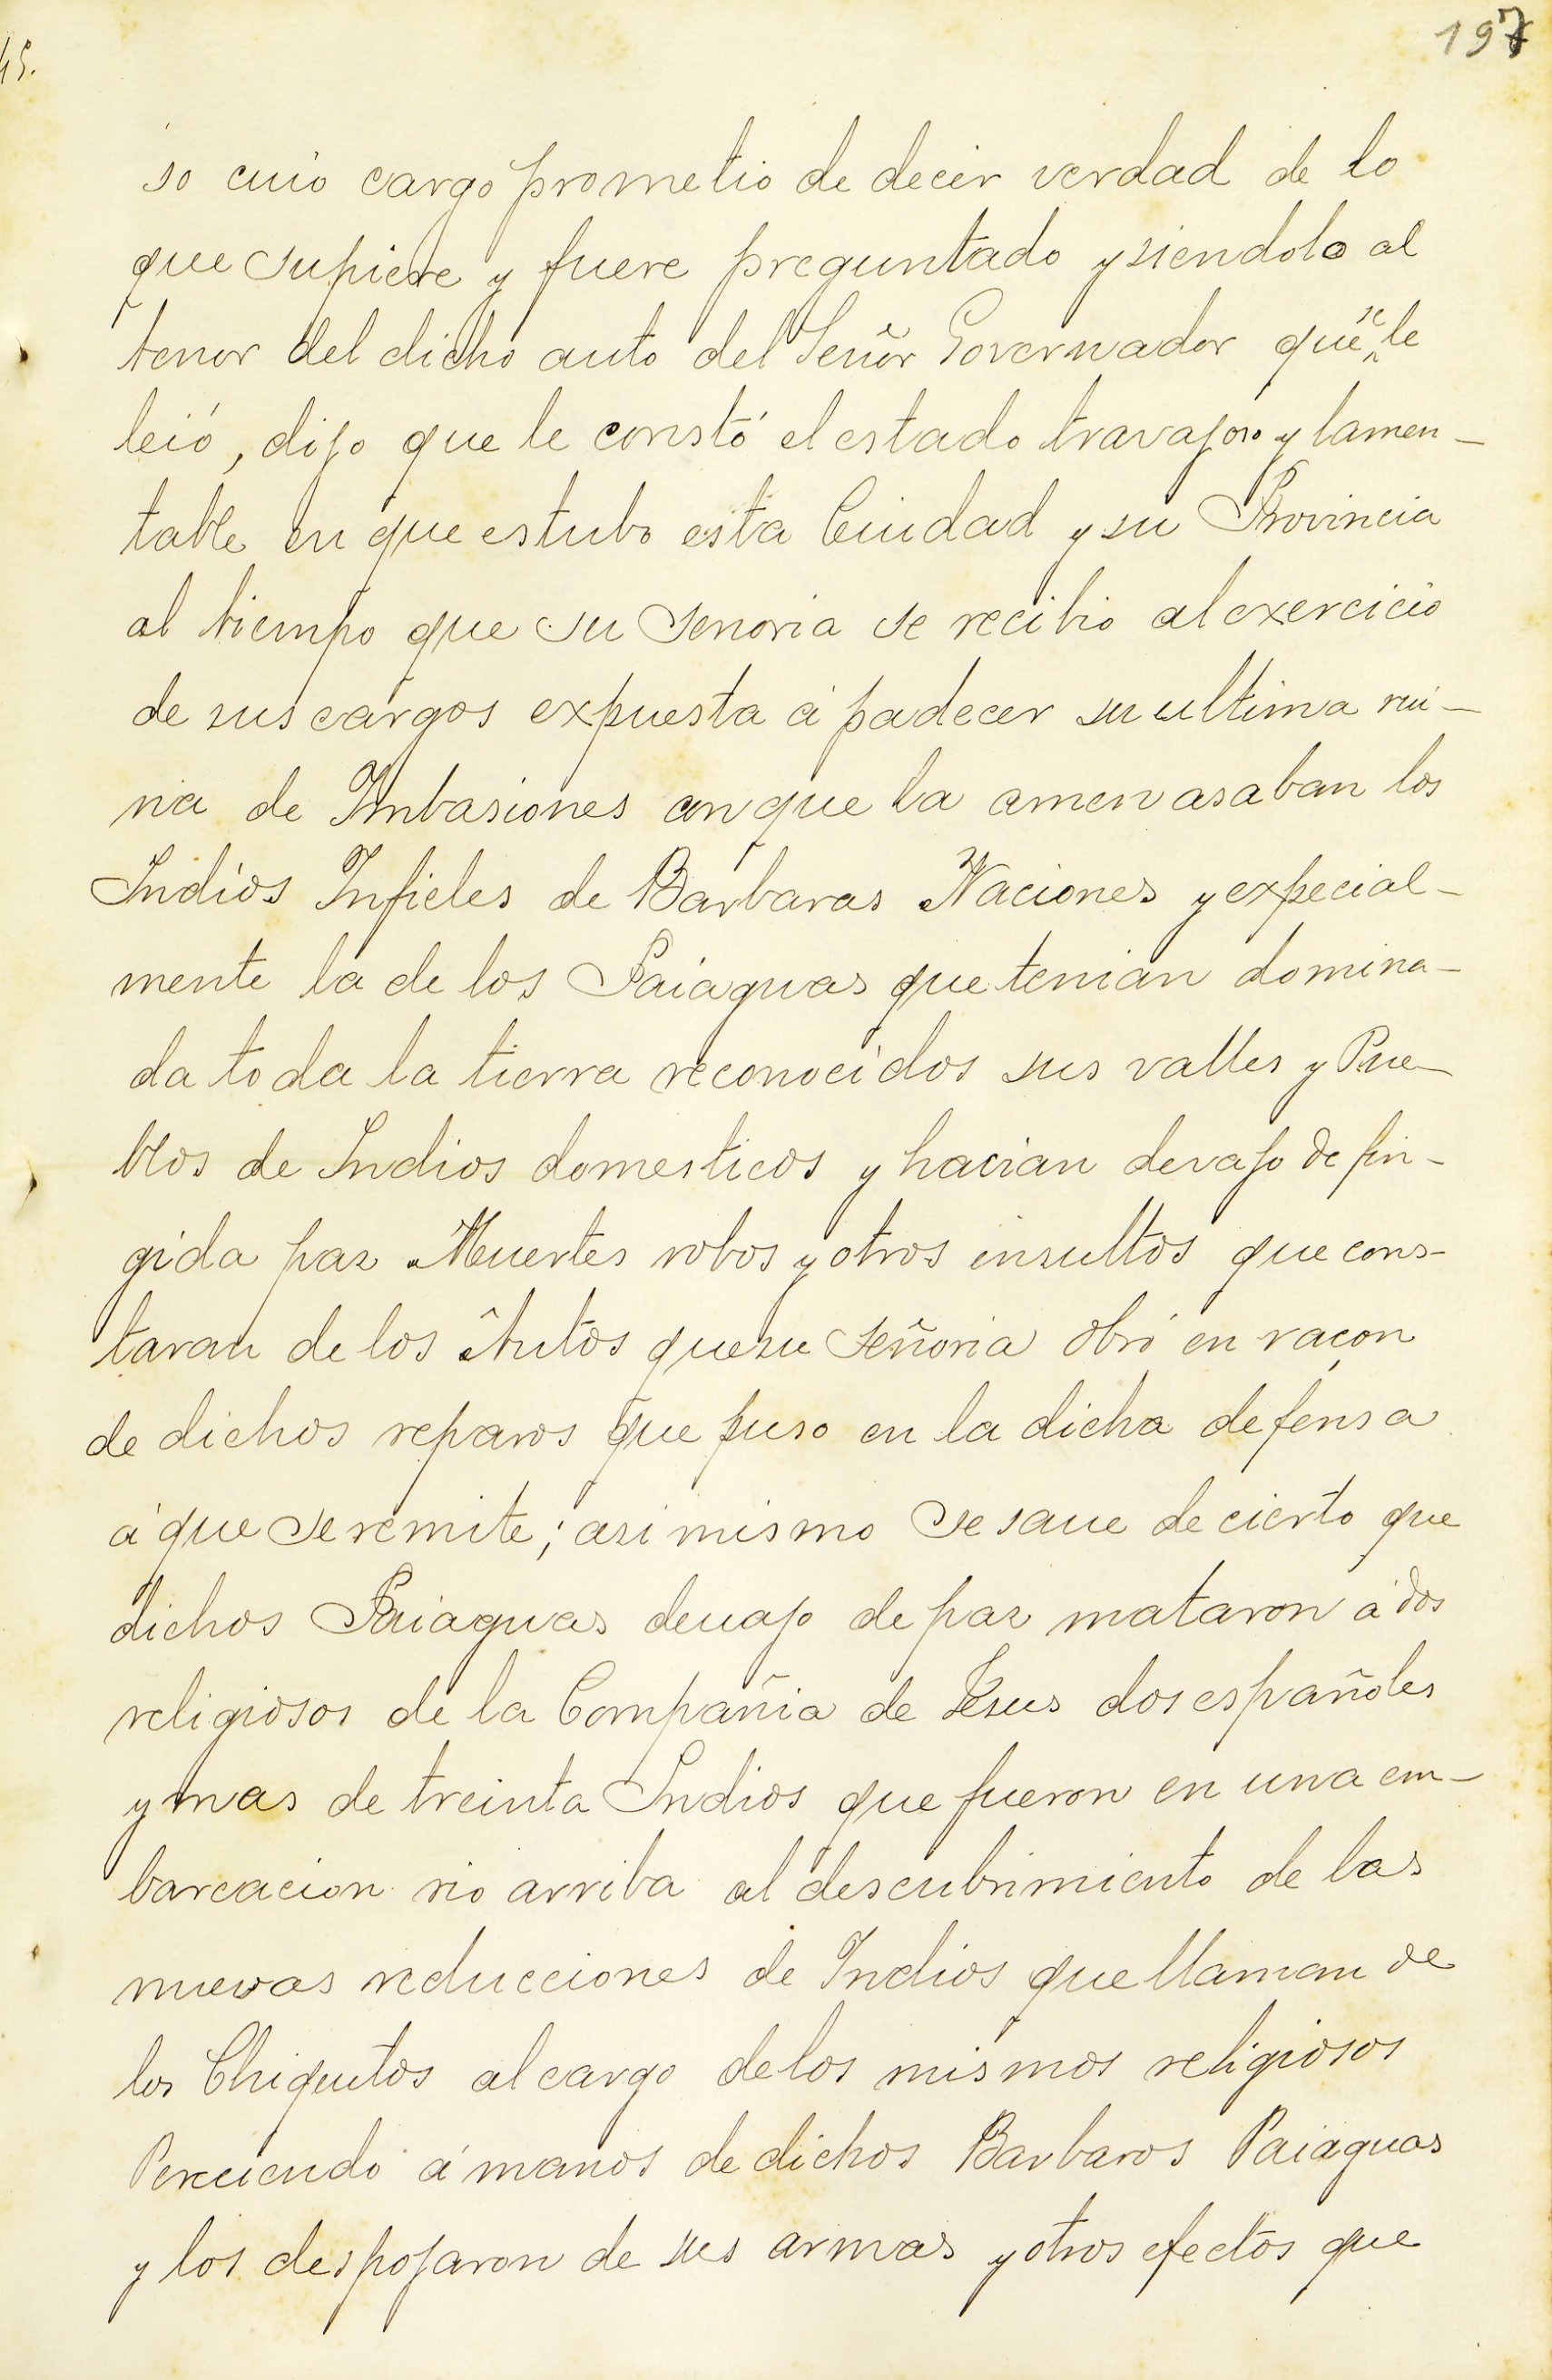 197
45.
so cuio cargo prometio de decir verdad de lo
que supiere y fuere preguntado y siendolo al
tenor del dicho auto del Señor Governador que se le
leió, dijo que le constó el estado travajoso y lamen-
table en que estubo esta Ciudad y su Provincia
al tiempo que su senoria se recibio al exercicio
de sus cargos expuesta á padecer su ultima rui-
na de Imbasiones con que la amenasaban los
Indios Infieles de Barbaras Naciones y expecial-
mente la de los Paiaguas que tenian domina-
da toda la tierra reconocidos sus valles y Pue-
blos de Indios domesticos y hacian devajo de fin-
gida paz Muertes robos y otros insultos que cons-
taran de los Autos que su señoria obró en raçon
de dichos reparos que puso en la dicha defensa
á que se remite; asi mismo se saue de cierto que
dichos Paiaguas deuajo de paz mataron á dos
religiosos de la Compañia de Jesus dos españoles
y mas de treinta Indios que fueron en una em-
barcacion rio arriba al descubrimiento de las
nuevas reducciones de Indios que llaman de
los Chiquitos al cargo de los mismos religiosos
á manos de dichos Barbaros Paiaguas
y los despojaron de sus armas y otros efectos que